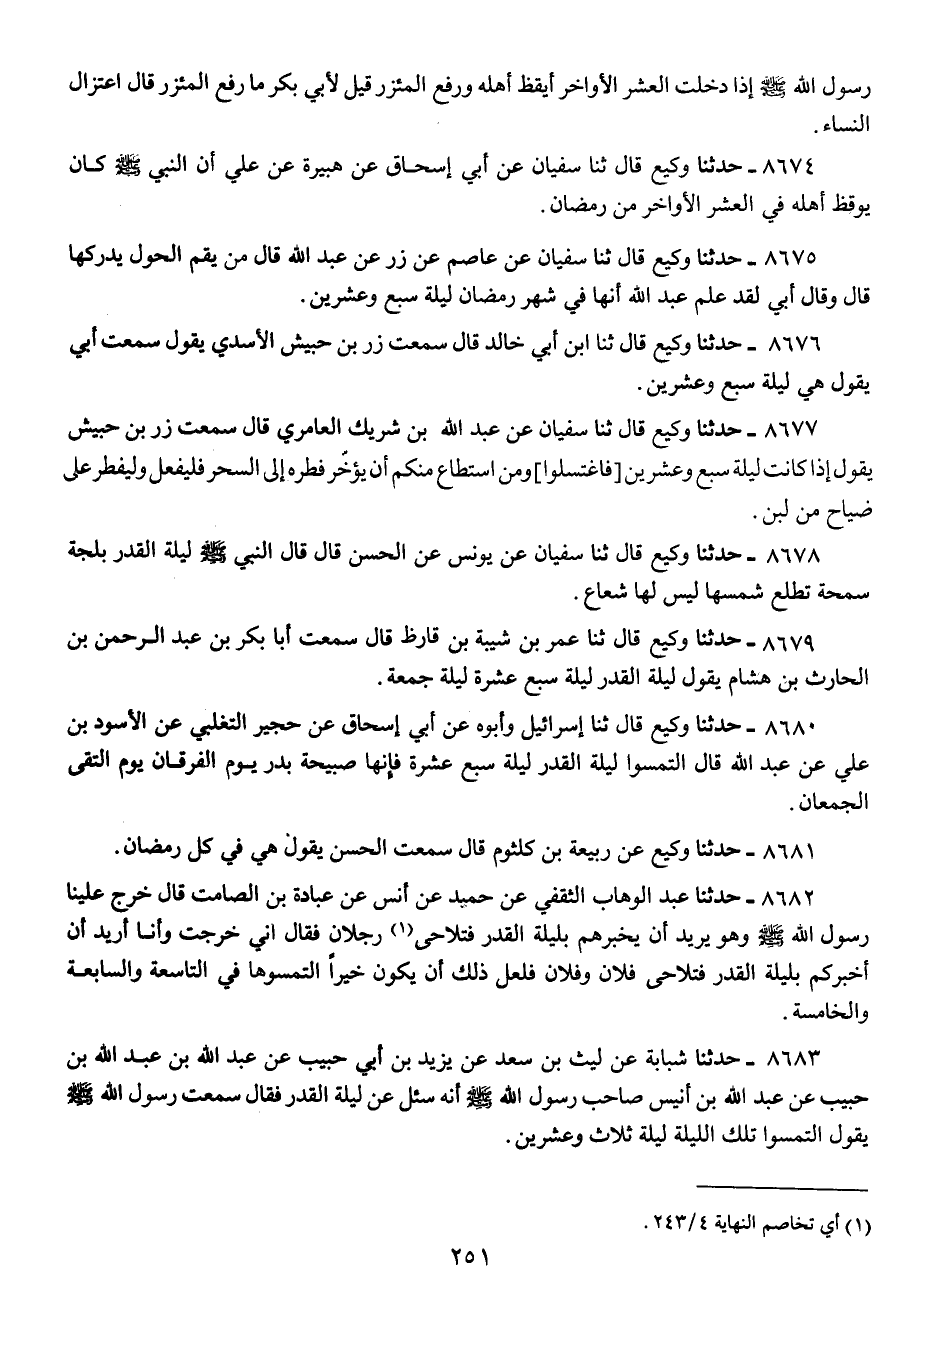 رسول الله ﷺ إذا دخلت العشر الأواخر أيقظ أهله ورفع المئزر قيل لأبي بكر ما رفع المئزر قال اعتزال
النساء.
٨٦٧٤ - حدثنا وكيع قال ثنا سفيان عن أبي إسحاق عن هبيرة عن علي أن النبي ﷺ كان
يوقظ أهله في العشر الأواخر من رمضان.
٨٦٧٥ - حدثنا وكيع قال ثنا سفيان عن عاصم عن زر عن عبد الله قال من يقم الحول يدركها
قال وقال أبي لقد علم عبد الله أنها في شهر رمضان ليلة سبع وعشرين.
٨٦٧٦ - حدثنا وكيع قال ثنا ابن أبي خالد قال سمعت زر بن حبيش الأسدي يقول سمعت أبي
يقول هي ليلة سبع وعشرين.
٨٦٧٧ - حدثنا وكيع قال ثنا سفيان عن عبد الله بن شريك العامري قال سمعت زر بن حبيش
يقول إذا كانت ليلة سبع وعشرين [فاغتسلوا] ومن استطاع منكم أن يؤخّر فطره إلى السحر فليفعل وليفطر على
ضياح من لبن.
٨٦٧٨ - حدثنا وكيع قال ثنا سفيان عن يونس عن الحسن قال قال النبي ﷺ ليلة القدر بلجة
سمحة تطلع شمسها ليس لها شعاع.
٨٦٧٩ - حدثنا وكيع قال ثنا عمر بن شيبة بن قارظ قال سمعت أبا بكر بن عبد الرحمن بن
الحارث بن هشام يقول ليلة القدر ليلة سبع عشرة ليلة جمعة.
٨٦٨٠ - حدثنا وكيع قال ثنا إسرائيل وأبوه عن أبي إسحاق عن حجير التغلبي عن الأسود بن
علي عن عبد الله قال التمسوا ليلة القدر ليلة سبع عشرة فإنها صبيحة بدر يوم الفرقان يوم التقى
الجمعان.
٨٦٨١ - حدثنا وكيع عن ربيعة بن كلثوم قال سمعت الحسن يقول هي في كل رمضان.
٨٦٨٢ - حدثنا عبد الوهاب الثقفي عن حميد عن أنس عن عبادة بن الصامت قال خرج علينا
رسول الله ﷺ وهو يريد أن يخبرهم بليلة القدر فتلاحى(١) رجلان فقال اني خرجت وأنا أريد أن
أخبركم بليلة القدر فتلاحى فلان وفلان فلعل ذلك أن يكون خيراً التمسوها في التاسعة والسابعة
والخامسة.
٨٦٨٣ - حدثنا شبابة عن ليث بن سعد عن يزيد بن أبي حبيب عن عبد الله بن عبد الله بن
حبيب عن عبد الله بن أنيس صاحب رسول الله ﷺ أنه سئل عن ليلة القدر فقال سمعت رسول الله ﷺ
يقول التمسوا تلك الليلة ليلة ثلاث وعشرين.
(١) أي تخاصم النهاية ٢٤٣/٤.
٢٥١